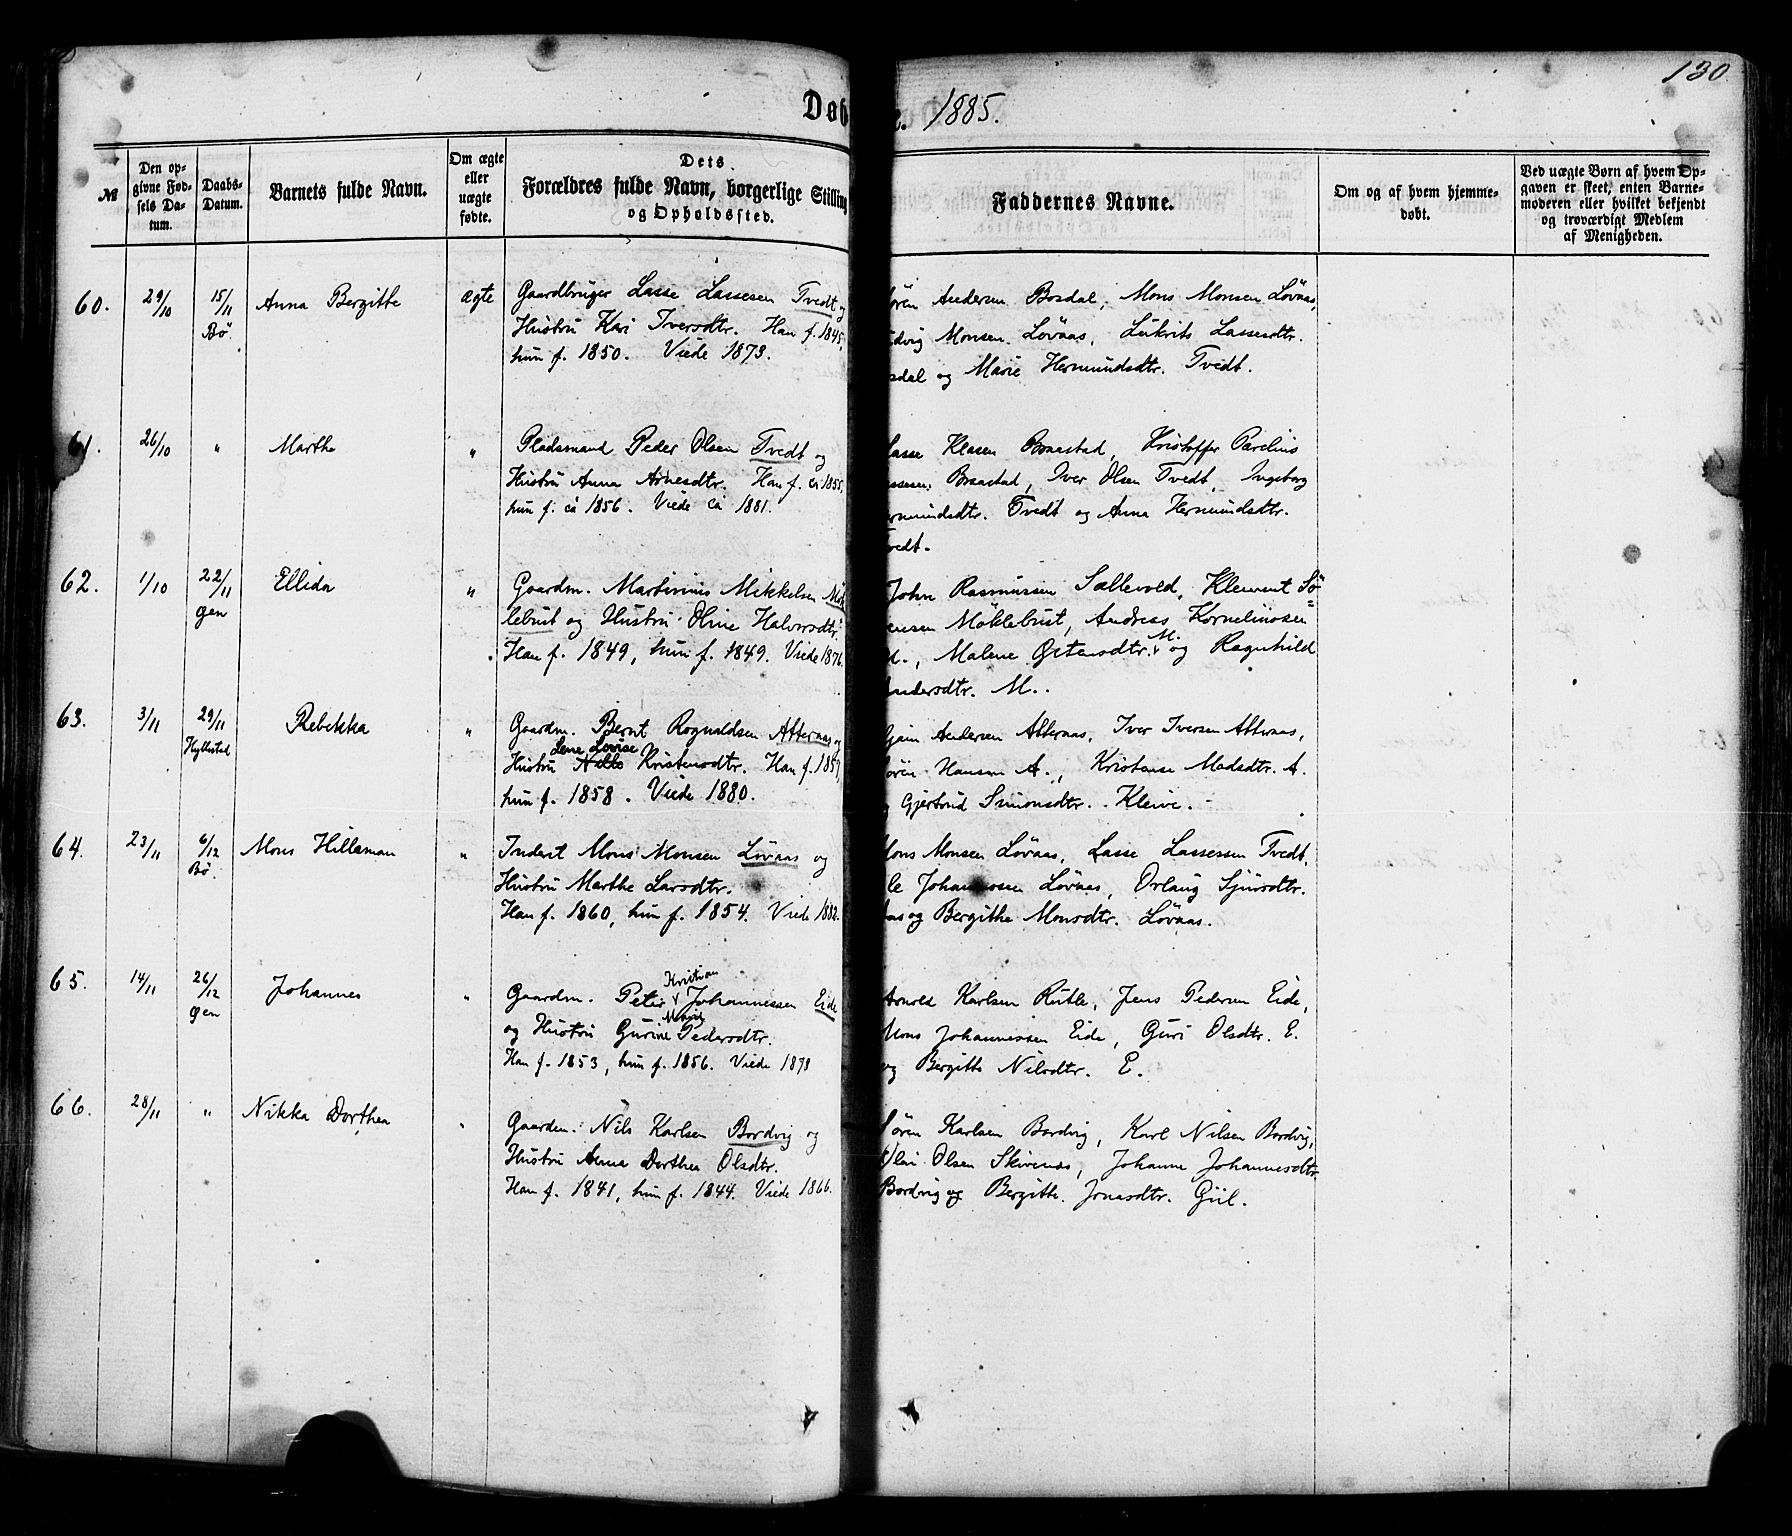 130
Døb
1885.
№
Den op-
givne Fød-
sels Da-
tum.
Daabs-
Datum.
Barnets fulde Navn.
Om ægte
eller
uægte
fødte.
Dets
Forældres fulde Navn, borgerlige Stilling
og Opholdssted.
Faddernes Navne.
Om og af hvem hjemme-
døbt.
Ved uægte Børn af hvem Op-
gaven er skeet, enten Barne-
moderen eller hvilket bekjendt
og troværdigt Medlem
af Menigheden.
60. 29/10 15/11 Bö. Anna Bergitte ægte
Gaardbruger Lasse Lassesen Tvedt og
Hustru Kari Iversdtr. Han f. 1845,
hun f. 1850. Viede 1873.
ören Andersen Bosdal, Mons Monsen Lövaas,
dvig Monsen Lövaas, Lukrits Lassesdtr.
sdal og Marie Hermundsdtr. Tvedt.
61. 26/10 " Marthe "
Pladsmand Peder Olsen Tvedt og
Hustru Anna Arnesdtr. Han f. ca 1855,
hun f. ca 1856. Viede ca 1881.
asse Klasen Braastad, Kristoffer Parelius
ssesen Braastad, Iver Olsen Tvedt, Ingeborg
ermundsdtr. Tvedt og Anna Hermundsdtr.
vedt.
62. 1/10 22/11 gen Ellida "
Gaardm. Martinius Mikkelsen Mök
lebust og Hustru Oline Halvorsdtr.
Han f. 1849, hun f. 1849. Viede 1876.
John Rasmussen Sællevold, Klement Sö=
rensen Möklebust, Andreas Korneliusen
M., Malene Östensdtr. M. og Ragnhild
Andersdtr. M.
63. 3/11 29/11 Hyllestad Rebekka "
Gaardm. Bernt Rognaldsen Atteraas og
Lene Lovise
Hustru Nille Kristensdtr. Han f. 1857,
hun f. 1858. Viede 1880.
Andersen Atteraas, Iver Iversen Atteraas,
ören Hansen A., Kristense Madsdtr. A.
og Gjertrud Simonsdtr. Kleive.
64. 23/11 6/12 Bö. Mons Hilleman "
Inderst Mons Monsen Lövaas og
Hustru Marthe Larsdtr.
Han f. 1860, hun f. 1854. Viede 1882.
Mons Monsen Lövaas, Lasse Lassesen Tvedt,
le Johannessen Lövaas, Orlaug Sjursdtr.
aas og Bergithe Monsdtr. Lövaas.
65. 14/11 26/12 gen Johannes "
Kristian
Gaardm. Peter Johannessen Eide
Marie
og Hustru Gurine Pedersdtr.
Han f. 1853, hun f. 1856. Viede 1878
Arnold Karlsen Rutle, Jens Pedersen Eide,
Mons Johannessen Eide, Guri Olsdtr. E.
og Bergitte Nilsdtr. E.
66. 28/11 " Nikka Dorthea "
Gaardm. Nils Karlsen Bordvig og
Hustru Anna Dorthea Olsdtr.
Han f. 1841, hun f. 1844. Viede 1866.
Sören Karlsen Bordvig, Karl Nilsen Bordvig,
Olai Olsen Skivenes, Johanne Johannesdtr.
Bordvig og Bergitte Jonasdtr. Giil.